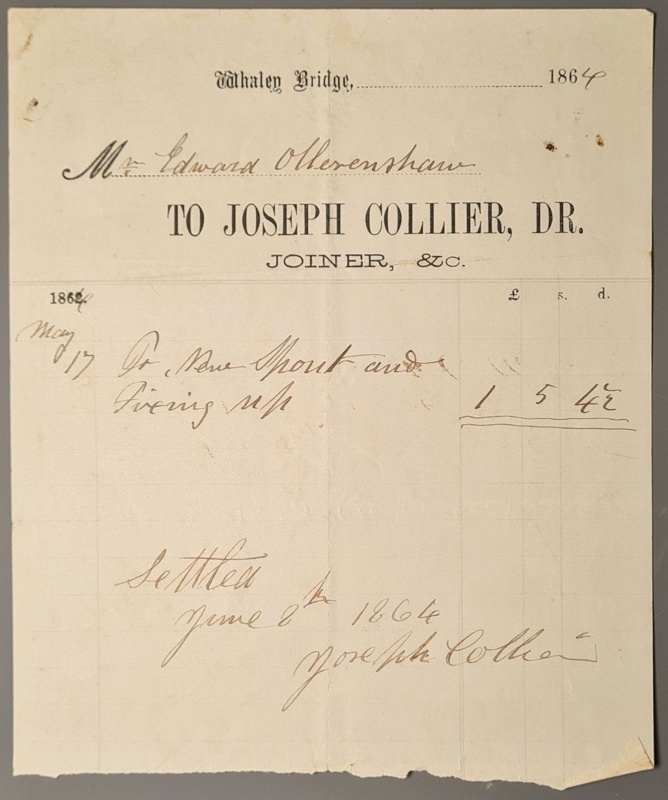 Whaley Bridge, 1864
Mr. Edward Ollerenshaw
TO JOSEPH COLLIER, DR.
JOINER, &C.
1864 £ s. d.
May
17 To New Spout and
Fixing up 1 5 4½
Settled
June 8th 1864
Joseph Collier